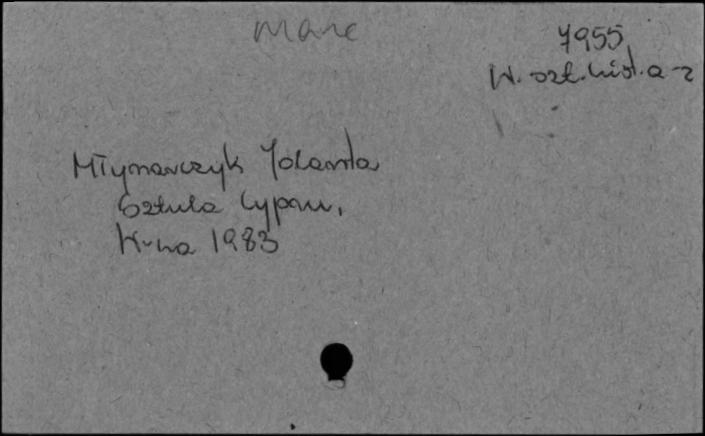 7955
W. szt. hist. a-z
Młynarczyk Jolanta
Sztuka Cypru,
K-wa 1983